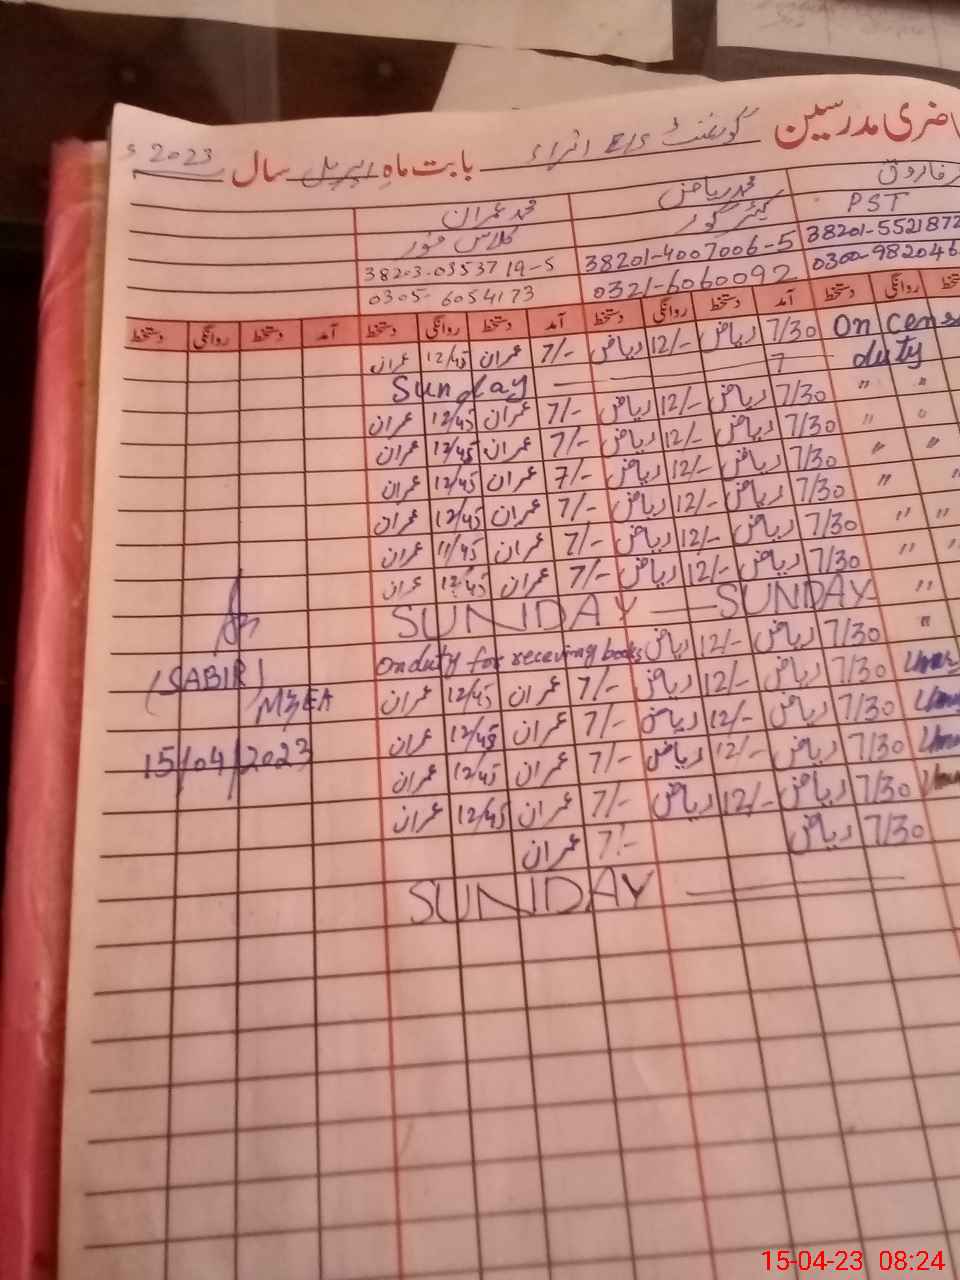 حاضری مدرسین گورنمنٹ E/S بابت ماہ اپریل سال 2023 ء
فاروق محمد ریاض محمد عمران
PST کیئر کلاس فور
38201-5521872 38201-4007006-5 38203-0353719-5
0300-982046 0321-6060092 0305-6054173
دستخط روانگی دستخط آمد دستخط روانگی دستخط آمد دستخط روانگی دستخط آمد دستخط روانگی دستخط
On 7/30 ریاض 12/- ریاض 7/- عمران 12/45 عمران
duty 7 Sunday
" " 7/30 ریاض 12/- ریاض 7/- عمران 12/45 عمران
" " 7/30 ریاض 12/- ریاض 7/- عمران 12/45 عمران
" " 7/30 ریاض 12/- ریاض 7/- عمران 12/45 عمران
" " 7/30 ریاض 12/- ریاض 7/- عمران 12/45 عمران
" " 7/30 ریاض 12/- ریاض 7/- عمران 11/45 عمران
" " 7/30 ریاض 12/- ریاض 7/- عمران 12/45 عمران
" SUNDAY — SUNDAY
" 7/30 ریاض 12/- ریاض On duty for receving books
7/30 ریاض 12/- ریاض 7/- عمران 12/45 عمران
7/30 ریاض 12/- ریاض 7/- عمران 12/45 عمران
7/30 ریاض 12/- ریاض 7/- عمران 12/45 عمران
7/30 ریاض 12/- ریاض 7/- عمران 12/45 عمران
7/30 ریاض 7/- عمران
SUNDAY
(SABIR)
MEA
15/04/2023
15-04-23 08:24